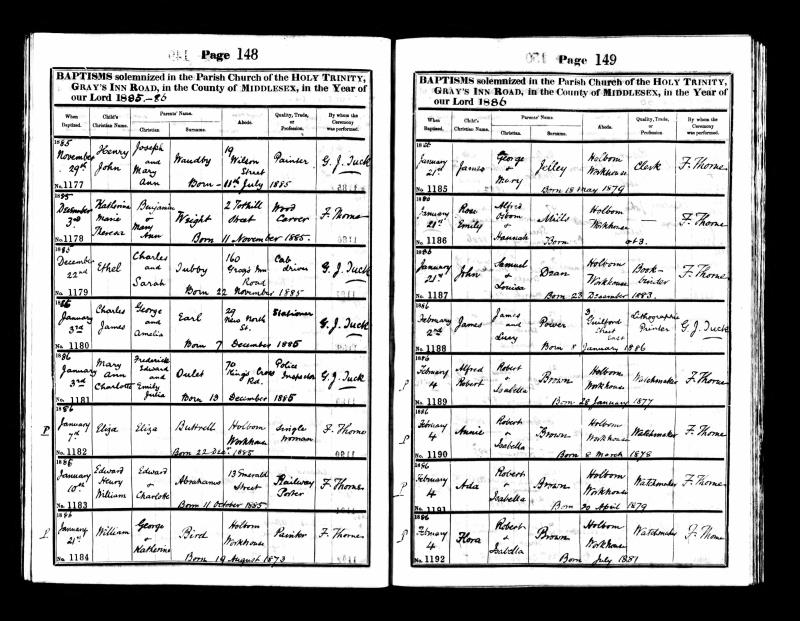 Page 148
BAPTISMS solemnized in the Parish Church of the HOLY TRINITY,
GRAY'S INN ROAD, in the County of MIDDLESEX, in the Year of
our Lord 1885.-86
When Baptized. Child's Christian Name. Parents' Name. Christian. Surname. Abode. Quality, Trade, or Profession. By whom the Ceremony was performed.
1885
November 29th Henry John Joseph and Mary Ann Waudby 19 Wilson Street Painter G. J. Tuck
No. 1177 Born - 11th July 1885
1885
December 3rd Katherine Marie Therese Benjamin & Mary Ann Wright 2 Tothill Street Wood Carver F. Thorne
No. 1178 Born 11 November 1885.
1885
December 22nd Ethel Charles and Sarah Tubby 160 Gray's Inn Road Cab driver G. J. Tuck
No. 1179 Born 22 November 1885
1886
January 3rd Charles James George and Amelia Earl 29 New North St. Stationer G. J. Tuck
No. 1180 Born 7 December 1885
1886
January 3rd Mary Ann Charlotte Frederick Edward and Emily Julia Oulet 70 King's Cross Rd. Police Inspector G. J. Tuck
No. 1181 Born 13 December 1885
1886
P January 7th Eliza Eliza Buttrell Holborn Workhouse Single woman F. Thorne
No. 1182 Born 22 Decr. 1885
1886
January 10th Edward Henry William Edward & Charlotte Abrahams 13 Emerald Street Railway Porter F. Thorne
No. 1183 Born 11 October 1885
1886
January 21st William George & Katherine Bird Holborn Workhouse Painter F. Thorne
No. 1184 Born 19 August 1873
Page 149
BAPTISMS solemnized in the Parish Church of the HOLY TRINITY,
GRAY'S INN ROAD, in the County of MIDDLESEX, in the Year of
our Lord 1886
When Baptized. Child's Christian Name. Parents' Name. Christian. Surname. Abode. Quality, Trade, or Profession. By whom the Ceremony was performed.
1886
January 21st James George & Mary Holborn Workhouse Clerk F. Thorne
No. 1185 Born 18 May 1879
1886
January 21st Rose Emily Alfred Osborn & Hannah Mills Holborn Workhouse — F. Thorne
No. 1186 Born
1886
January 21st John Samuel & Louisa Dean Holborn Workhouse Book-binder F. Thorne
No. 1187 Born 23 December 1883.
1886
February 2nd James James and Lucy Power 3 Guilford Street East Lithographic Printer G. J. Tuck
No. 1188 Born 8 January 1886
1886
P February 4 Alfred Robert Robert & Isabella Brown Holborn Workhouse Watchmaker F. Thorne
No. 1189 Born 28 January 1877
1886
P February 4 Annie Robert & Isabella Brown Holborn Workhouse Watchmaker F. Thorne
No. 1190 Born 8 March 1878
1886
P February 4 Ada Robert & Isabella Brown Holborn Workhouse Watchmaker F. Thorne
No. 1191 Born 20 April 1879
1886
P February 4 Flora Robert & Isabella Brown Holborn Workhouse Watchmaker F. Thorne
No. 1192 Born July 1881